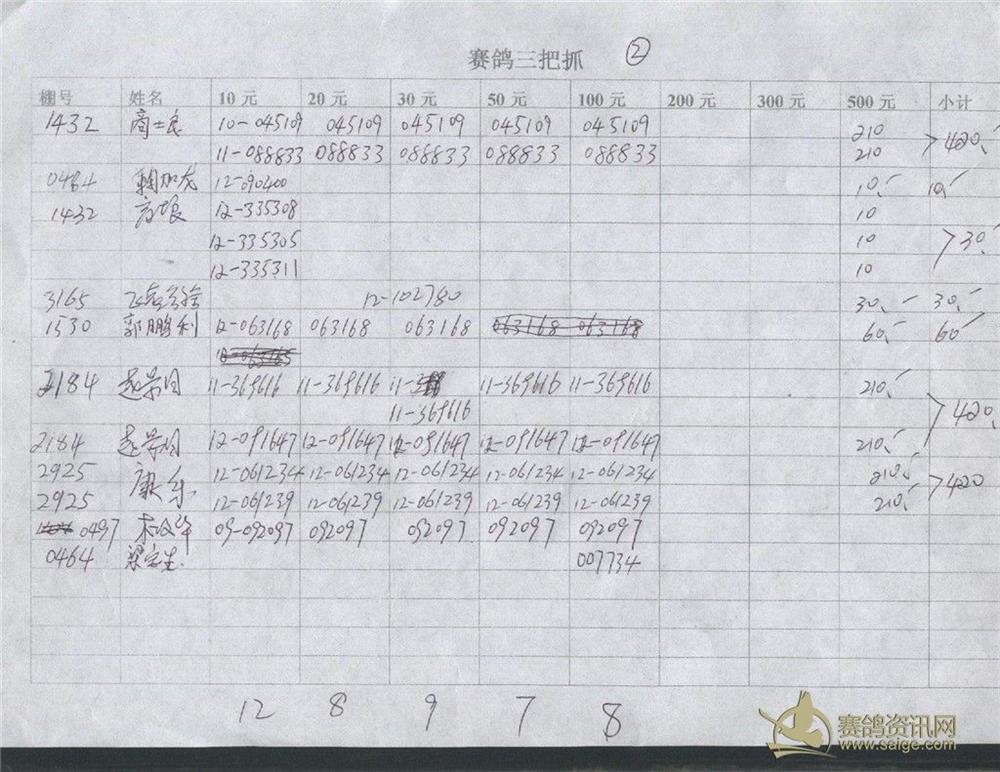 赛鸽三把抓 ②
棚号 姓名 10 元 20 元 30 元 50 元 100 元 200 元 300 元 500 元 小计
1432 商士良 10-045109 045109 045109 045109 045109 210
11-088833 088833 088833 088833 088833 210 420.
0484 韩加龙 12-090400 10.- 10.-
1432 12-335308 10
12-335305 10 30.
12-335311 10
3165 12-102780 30.- 30.-
1530 郭鹏利 12-063168 063168 063168 063168 063168 60.- 60
12-063165
2184 赵景同 11-369616 11-369616 11-369616 11-369616 210.-
11-369616 420.
2184 赵景同 12-091647 12-091647 12-091647 12-091647 12-091647 210.-
2925 康乐 12-061234 12-061234 12-061234 12-061234 12-061234 210.- 420
2925 12-061239 12-061239 12-061239 12-061239 12-061239 210.-
0497 09-092097 092097 092097 092097 092097
0464 梁宝生 007734
12 8 9 7 8
赛鸽资讯网
www.saige.com